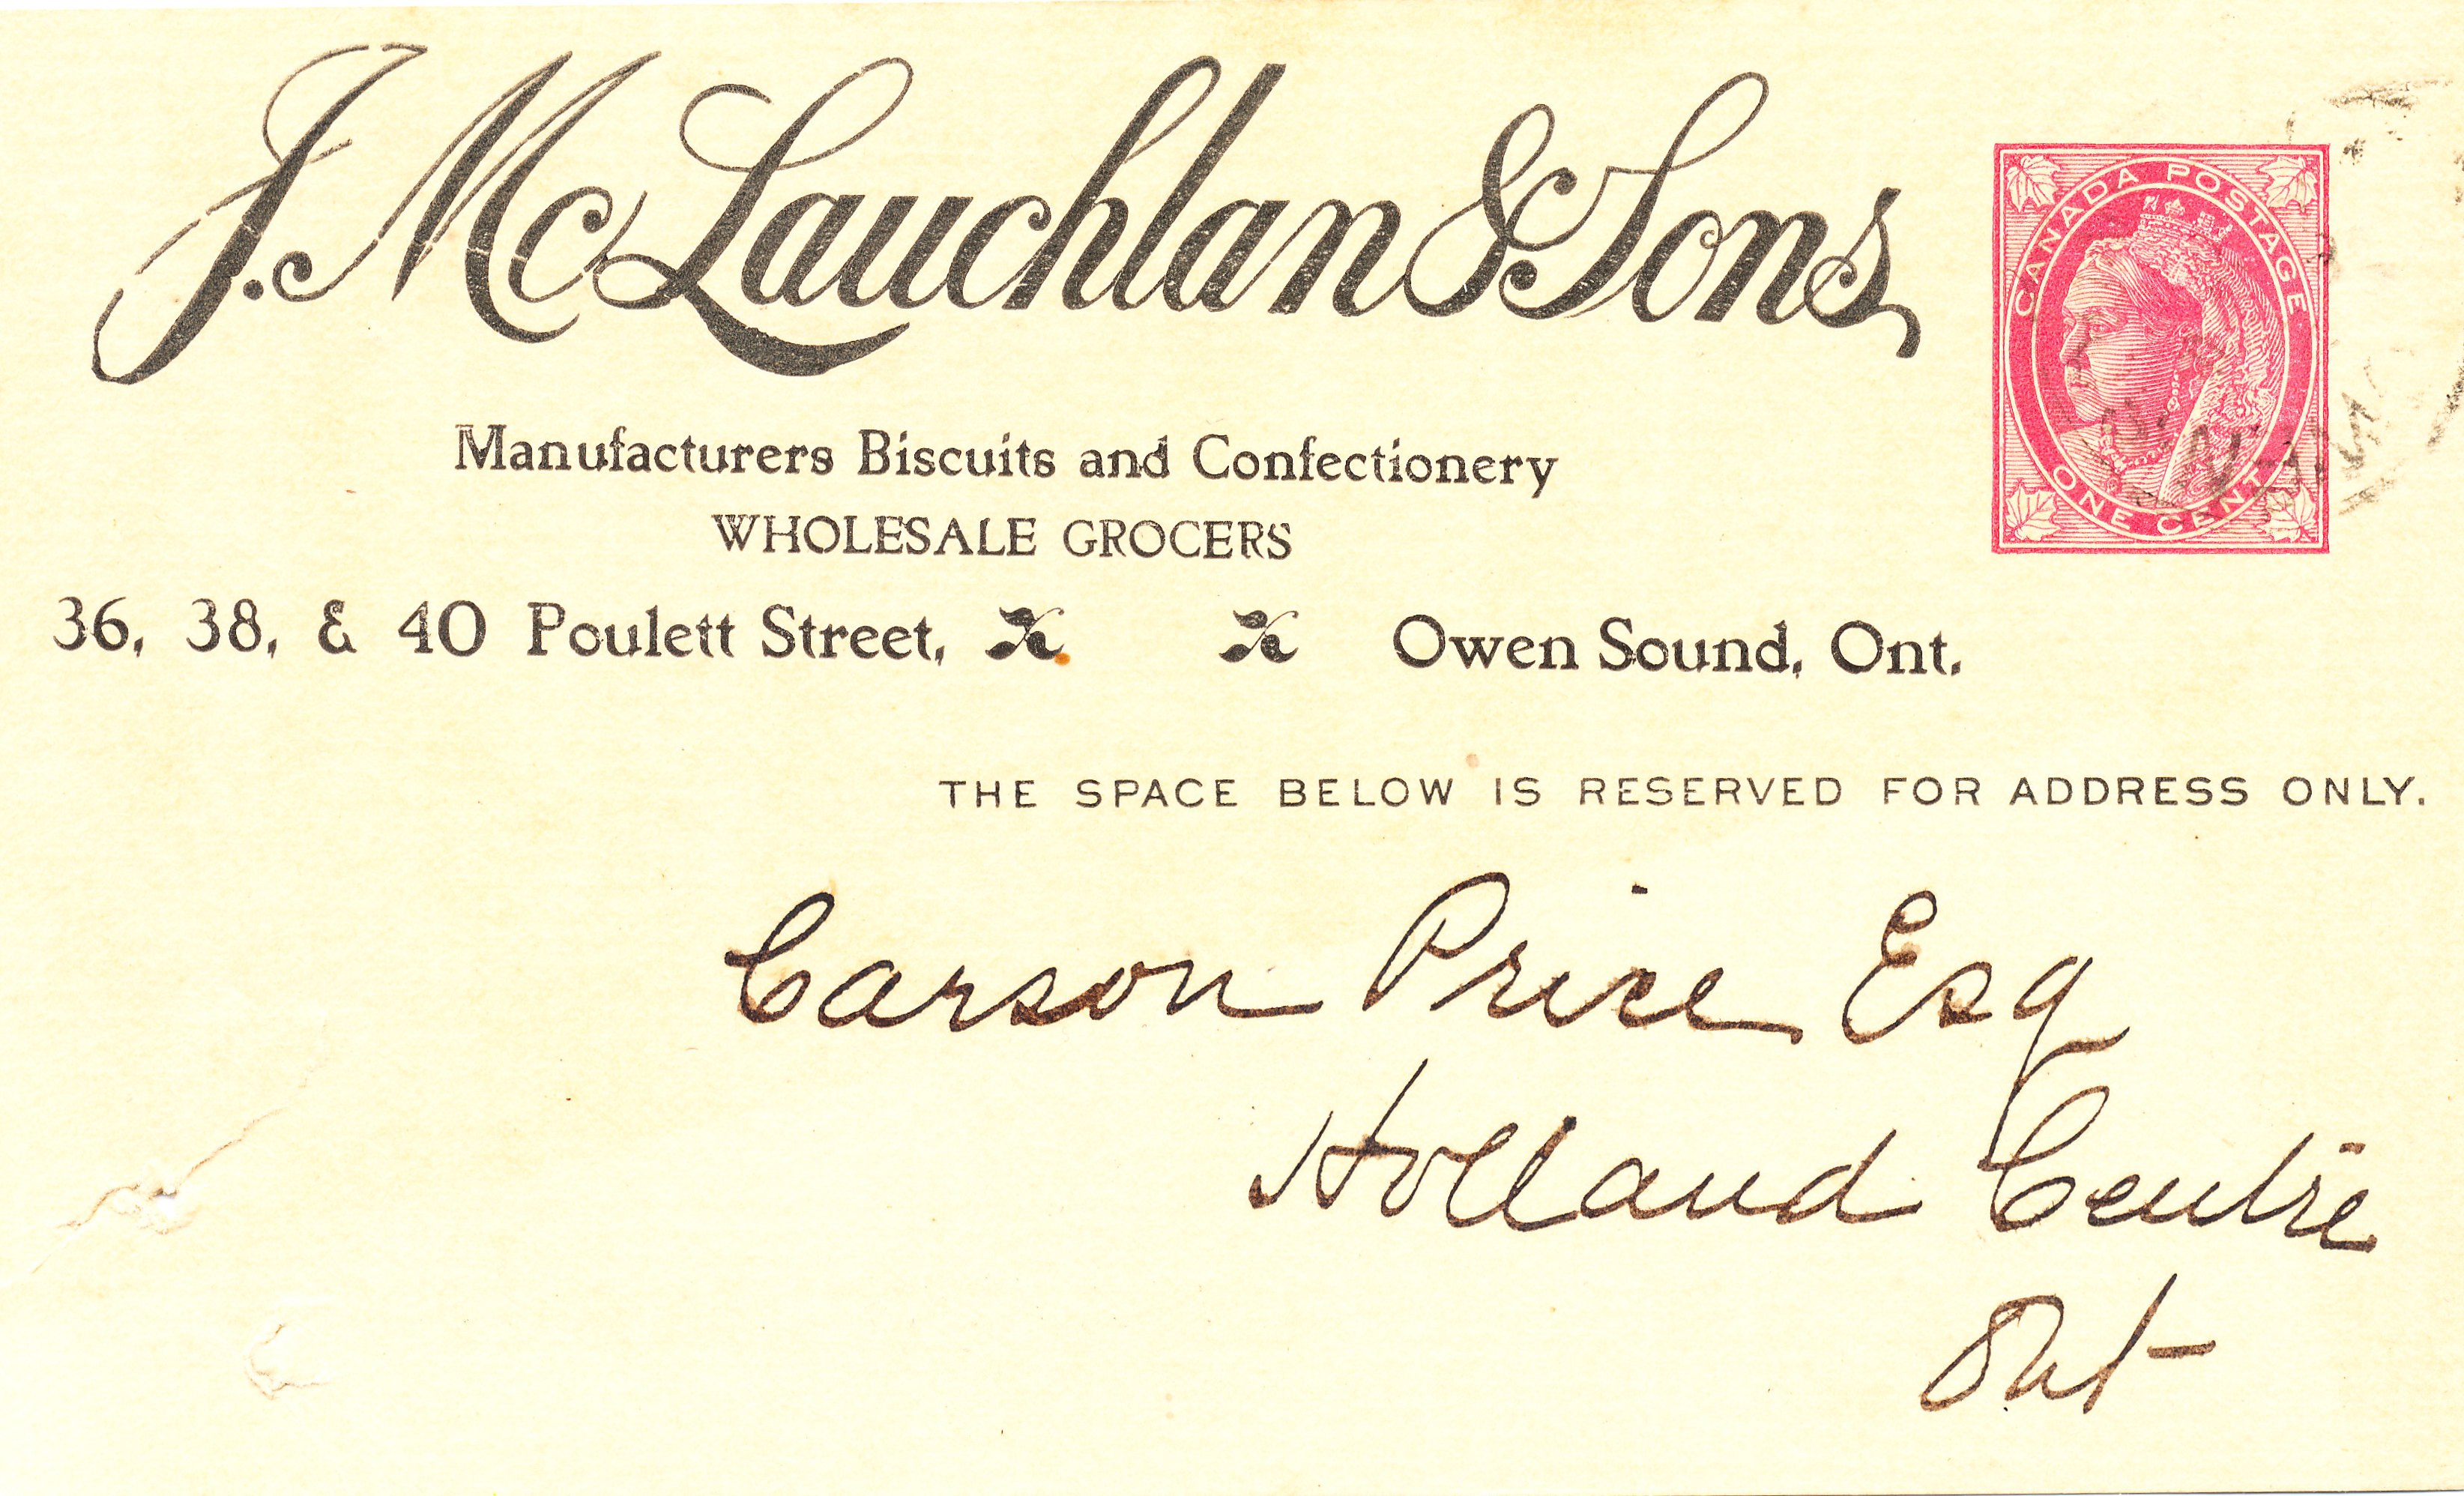 J. McLauchlan & Sons,
CANADA POSTAGE
ONE CENT
Manufacturers Biscuits and Confectionery
WHOLESALE GROCERS
36, 38, & 40 Poulett Street, Owen Sound, Ont.
THE SPACE BELOW IS RESERVED FOR ADDRESS ONLY.
Carson Price Esq
Holland Centre
Ont